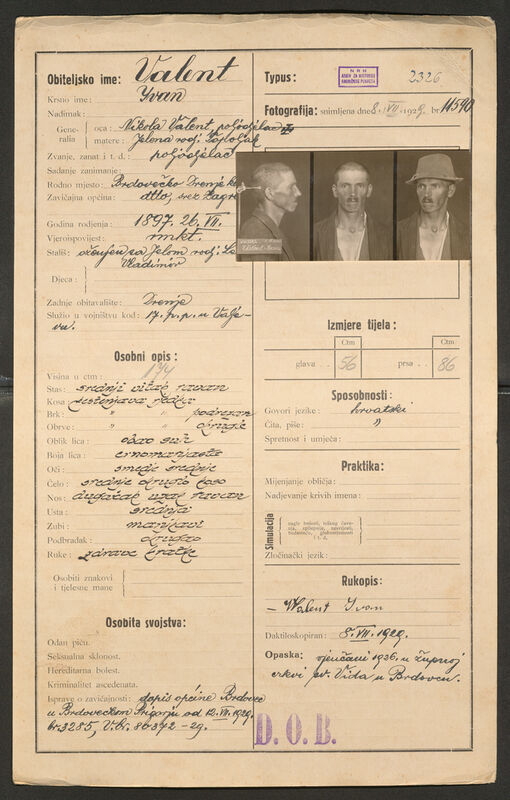 Obiteljsko ime: Valent
Krsno ime: Yvan
Nadimak:
Gene-
ralia
oca: Nikola Valent, poljodjelac
matere: Jelena rodj.
Zvanje, zanat i t. d.: poljodjelac
Sadanje zanimanje:
Rodno mjesto: Brdovečko Drenje
Zavičajna općina: dtto, srez Zagre
Godina rodjenja: 1897. 26. VII.
Vjeroispovijest: rmkt.
Stališ: oženjen sa Jelom rodj.
Vladimir
Djeca:
Zadnje obitavalište: Drenje
Služio u vojništvu kod: 17. p. p. u Valje-
vu.
Osobni opis:
Visina u ctm: 174
Stas: srednji vitak ravan
Kosa: kestenjava redka
Brk: " " podrezan
Obrve: " " druge
Oblik lica: obao suh
Boja lica: crnomanjasta
Oči: smedje srednje
Čelo: srednje oruglo koso
Nos: dugačak uzak ravan
Usta: srednja
Zubi: manjkavi
Podbradak: okrugao
Ruke: zdrave kratke
Osobiti znakovi
i tjelesne mane
Osobita svojstva:
Odan piću.
Seksualna sklonost.
Hereditarna bolest.
Kriminalitet ascedenata.
Isprave o zavičajnosti: dopis općine Brdovec
u Brdovečkom Prigorju od 12. VII. 1929.
br. 3285, V. br. 80372 - 29.
Typus:
N R H
2326
Fotografija: snimljena dne 8. VII. 1929. br. 11590
Izmjere tijela:
Ctm Ctm
glava 56 prsa 86
Sposobnosti:
Govori jezike: hrvatski
Čita, piše: "
Spretnost i umjeća:
Praktika:
Mijenjanje obličja:
Nadjevanje krivih imena:
Simulacija
i t. d.
Zločinački jezik:
Rukopis:
– Valent Yvan
Daktiloskopiran: 8. VII. 1929.
Opaska: vjenčani 1926. u župnoj
crkvi sv. Vida u Brdovcu.
D. O. B.